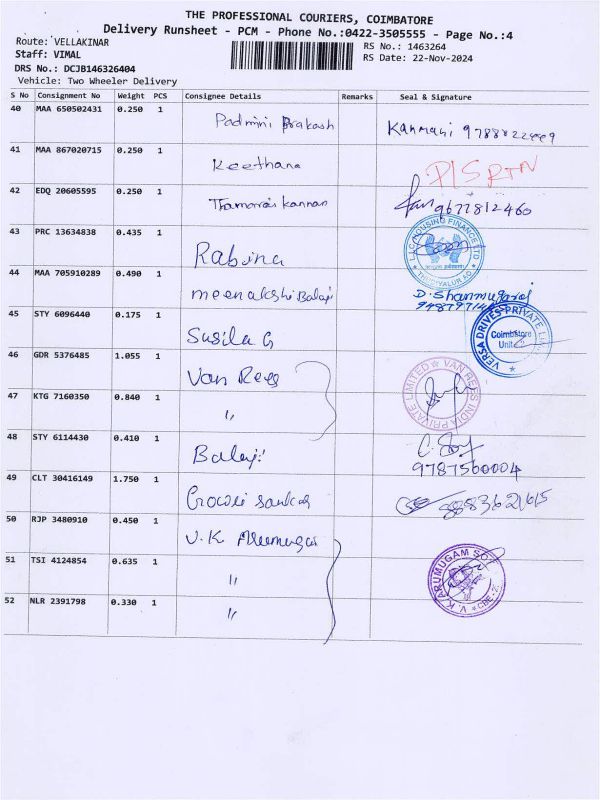 THE PROFESSIONAL COURIERS, COIMBATORE
Delivery Runsheet - PCM - Phone No.:0422-3505555 - Page No.:4
Route: VELLAKINAR
RS No.: 1463264
Staff: VIMAL
RS Date: 22-Nov-2024
DRS No.: DCJB146326404
Vehicle: Two Wheeler Delivery
S No Consignment No Weight PCS Consignee Details Remarks Seal & Signature
40 MAA 650502431 0.250 1 Padmini Prakash Kanmani
41 MAA 867020715 0.250 1 Keethana
42 EDQ 20605595 0.250 1 Thamarai kannan 9677812460
43 PRC 13634838 0.435 1 Rabina
LIC HOUSING FINANCE LTD
44 MAA 705910289 0.490 1 meenakshi Balaji D. Shanmugaraj
45 STY 6096440 0.175 1 Susila G
VERSA DRIVES PRIVATE
Coimbatore
Unit 2
46 GDR 5376485 1.055 1 Van Rees
VAN REES INDIA PRIVATE LIMITED
47 KTG 7160350 0.840 1 "
48 STY 6114430 0.410 1 Balaji
9787560004
49 CLT 30416149 1.750 1 Gowri sankar
50 RJP 3480910 0.450 1 V.K Arumugam
51 TSI 4124854 0.635 1 "
V.K ARUMUGAM
52 NLR 2391798 0.330 1 "